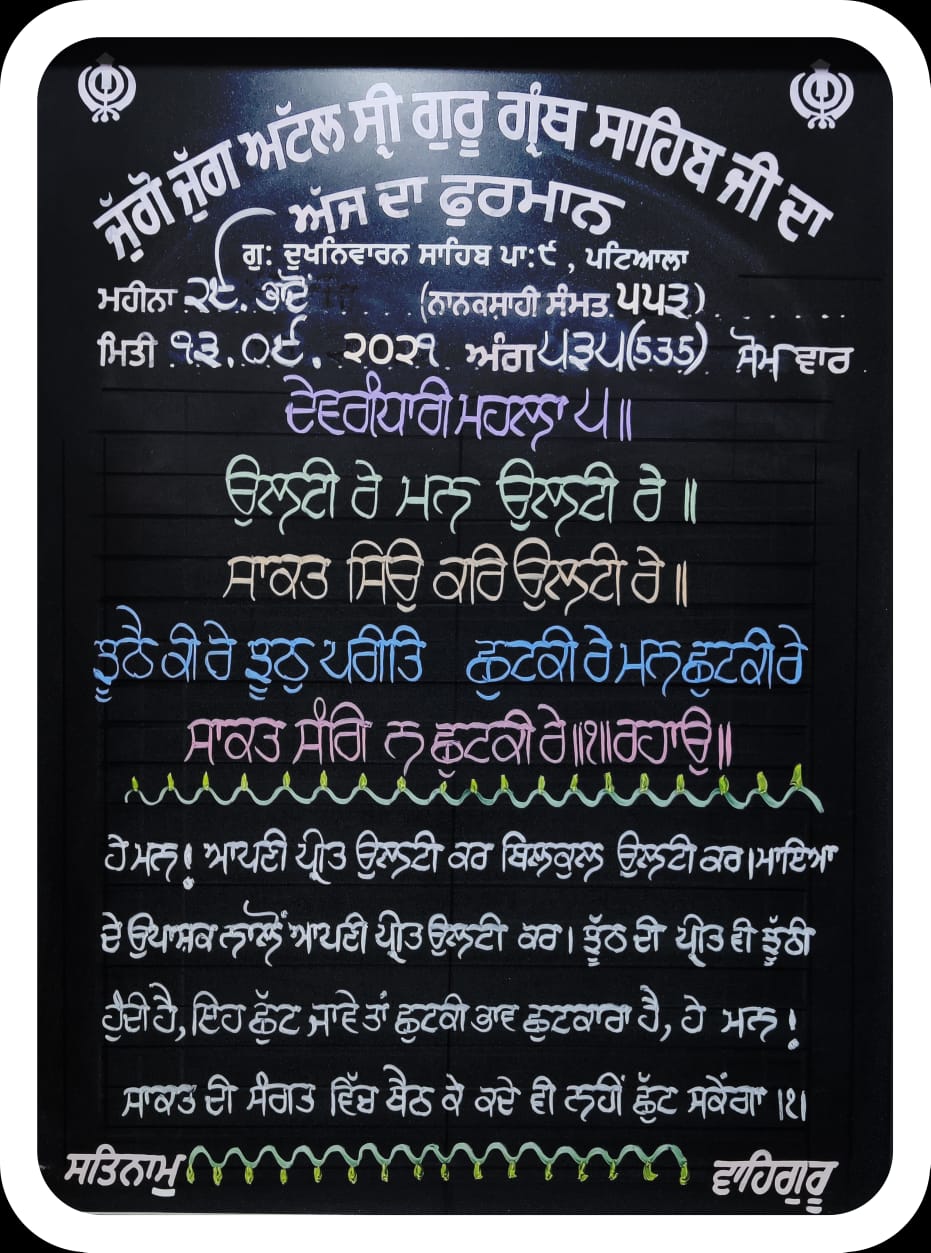 ਜੁੱਗੋ ਜੁੱਗ ਅਟੱਲ ਸ੍ਰੀ ਗੁਰੂ ਗ੍ਰੰਥ ਸਾਹਿਬ ਜੀ ਦਾ
ਅੱਜ ਦਾ ਫੁਰਮਾਨ
ਗੁ: ਦੁਖਨਿਵਾਰਨ ਸਾਹਿਬ ਪਾ:੯ , ਪਟਿਆਲਾ
ਮਹੀਨਾ ੨੯. ਭਾਦੋਂ (ਨਾਨਕਸ਼ਾਹੀ ਸੰਮਤ ੫੫੩)
ਮਿਤੀ ੧੩.੦੯. ੨੦੨੧ ਅੰਗ ੫੩੫(535) ਸੋਮ ਵਾਰ
ਦੇਵਗੰਧਾਰੀ ਮਹਲਾ ੫॥
ਉਲਟੀ ਰੇ ਮਨ ਉਲਟੀ ਰੇ ॥
ਸਾਕਤ ਸਿਉ ਕਰਿ ਉਲਟੀ ਰੇ ॥
ਝੂਠੈ ਕੀ ਰੇ ਝੂਠੁ ਪਰੀਤਿ ਛੁਟਕੀ ਰੇ ਮਨ ਛੁਟਕੀ ਰੇ
ਸਾਕਤ ਸੰਗਿ ਨ ਛੁਟਕੀ ਰੇ ॥੧॥ ਰਹਾਉ॥
ਹੇ ਮਨ! ਆਪਣੀ ਪ੍ਰੀਤ ਉਲਟੀ ਕਰ ਬਿਲਕੁਲ ਉਲਟੀ ਕਰ। ਮਾਇਆ
ਦੇ ਉਪਾਸ਼ਕ ਨਾਲੋਂ ਆਪਣੀ ਪ੍ਰੀਤ ਉਲਟੀ ਕਰ। ਝੂੱਠ ਦੀ ਪ੍ਰੀਤ ਵੀ ਝੂੱਠੀ
ਹੁੰਦੀ ਹੈ, ਇਹ ਛੁੱਟ ਜਾਵੇ ਤਾਂ ਛੁਟਕੀ ਭਾਵ ਛੁਟਕਾਰਾ ਹੈ, ਹੇ ਮਨ!
ਸਾਕਤ ਦੀ ਸੰਗਤ ਵਿੱਚ ਬੈਠ ਕੇ ਕਦੇ ਵੀ ਨਹੀਂ ਛੁੱਟ ਸਕੇਂਗਾ ।੧।
ਸਤਿਨਾਮੁ ਵਾਹਿਗੁਰੂ